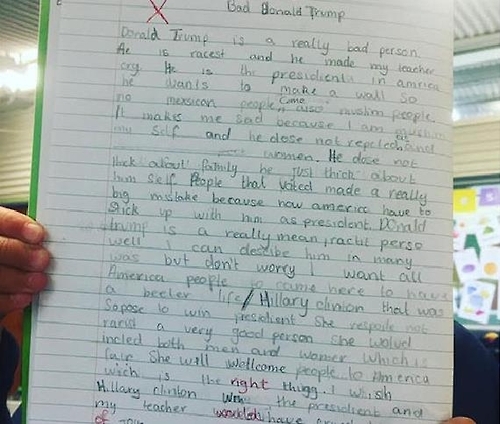 Bad Donald Trump
Donald Trump is a really bad person.
He is racest and he made my teacher
cry. He is the presidients in amrica
he wants to make a wall so
no mexsican people come also muslim people.
It makes me sad because I am muslim
my self and he dose not repclech and
women. He dose not
thick about family he just thick about
him self. People that voted made a really
big mistake because now americ have to
Stick up with him as president. Donald
trump is a really mean, racist perso
well I can destibe him in many
was but don't worry I want all
America people to came here to have
a beeter life / Hillary clinton that was
Sopose to win presidient She respaile not
racist a very good person She wolud
incled both men and women which is
fair She will wellcome people to America
wich is the right thingg. I wish
Hillary clinton won the presidient and
my teacher wouldnt have
of